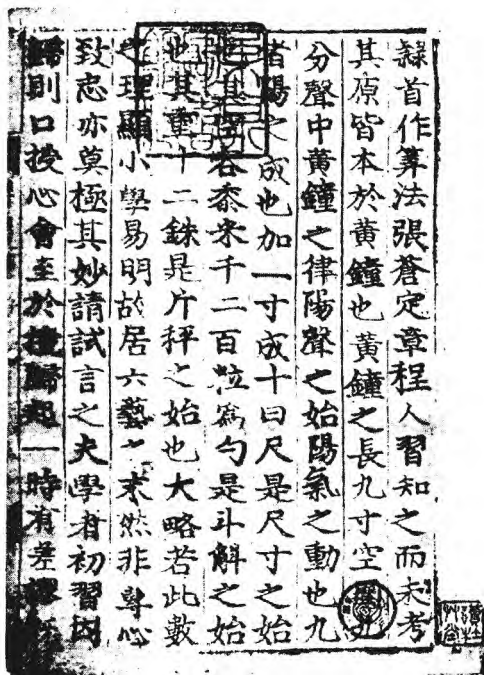 隸首作算法張蒼定章程人習知之而未考
其原皆本於黃鐘也黃鐘之長九寸空
分聲中黃鐘之律陽聲之始陽氣之動也九
者陽之成也加一寸成十曰尺是尺寸之始
容黍米千二百粒為勺是斗斛之始
也其重十二銖是斤秤之始也大略若此數
之理顯小學易明故居六藝之末然非專心
致志亦莫極其妙請試言之夫學者初習因
歸則口授心會至於撞歸起一時有差